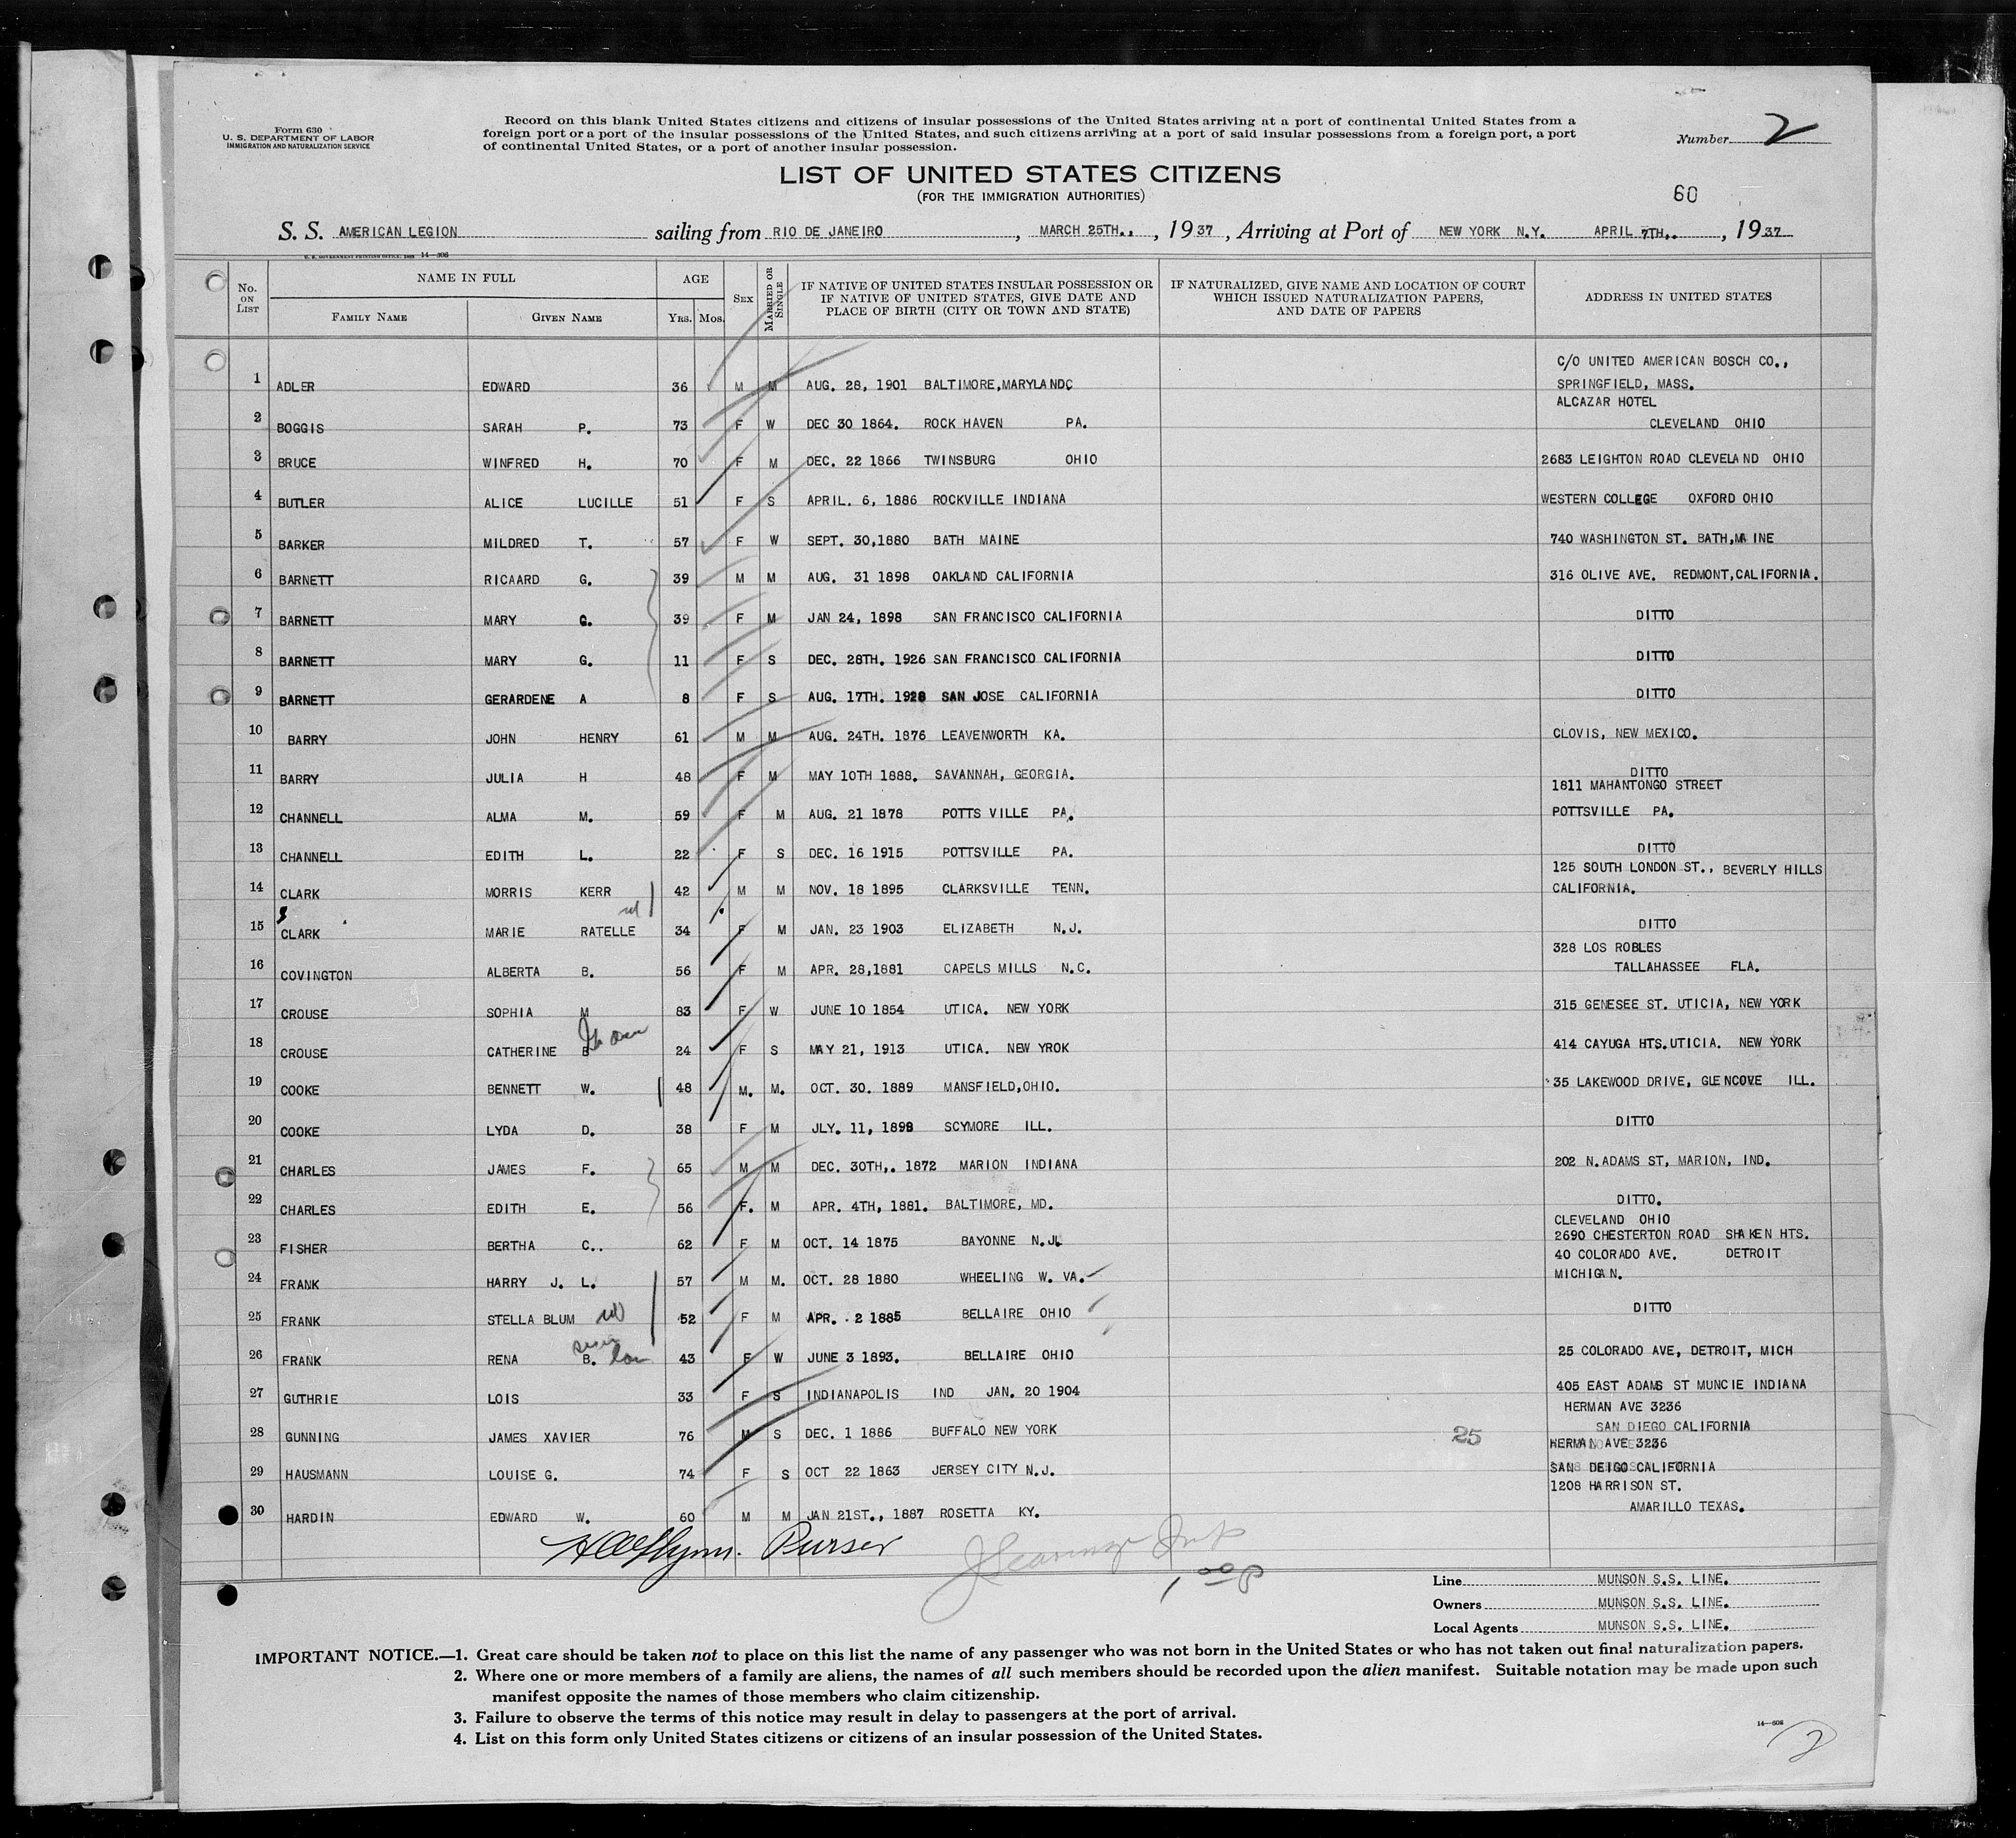 Form 630
U. S. DEPARTMENT OF LABOR
IMMIGRATION AND NATURALIZATION SERVICE
Record on this blank United States citizens and citizens of insular possessions of the United States arriving at a port of continental United States from a
foreign port or a port of the insular possessions of the United States, and such citizens arriving at a port of said insular possessions from a foreign port, a port
of continental United States, or a port of another insular possession.
Number 2
LIST OF UNITED STATES CITIZENS
(FOR THE IMMIGRATION AUTHORITIES)
60
S. S. AMERICAN LEGION sailing from RIO DE JANEIRO, MARCH 25TH., , 1937, Arriving at Port of NEW YORK N.Y. APRIL 7TH,. , 1937
U. S. GOVERNMENT PRINTING OFFICE: 14—608
No. ON LIST NAME IN FULL FAMILY NAME GIVEN NAME AGE YRS. MOS. SEX MARRIED OR SINGLE IF NATIVE OF UNITED STATES INSULAR POSSESSION OR IF NATIVE OF UNITED STATES, GIVE DATE AND PLACE OF BIRTH (CITY OR TOWN AND STATE) IF NATURALIZED, GIVE NAME AND LOCATION OF COURT WHICH ISSUED NATURALIZATION PAPERS, AND DATE OF PAPERS ADDRESS IN UNITED STATES
C/O UNITED AMERICAN BOSCH CO.,
1 ADLER EDWARD 36 M M AUG. 28, 1901 BALTIMORE,MARYLANDC SPRINGFIELD, MASS.
ALCAZAR HOTEL
2 BOGGIS SARAH P. 73 F W DEC 30 1864. ROCK HAVEN PA. CLEVELAND OHIO
3 BRUCE WINFRED H. 70 F M DEC. 22 1866 TWINSBURG OHIO 2683 LEIGHTON ROAD CLEVELAND OHIO
4 BUTLER ALICE LUCILLE 51 F S APRIL. 6, 1886 ROCKVILLE INDIANA WESTERN COLLEGE OXFORD OHIO
5 BARKER MILDRED T. 57 F W SEPT. 30,1880 BATH MAINE 740 WASHINGTON ST. BATH,MAINE
6 BARNETT RICAARD G. 39 M M AUG. 31 1898 OAKLAND CALIFORNIA 316 OLIVE AVE. REDMONT,CALIFORNIA.
7 BARNETT MARY G. 39 F M JAN 24, 1898 SAN FRANCISCO CALIFORNIA DITTO
8 BARNETT MARY G. 11 F S DEC. 28TH. 1926 SAN FRANCISCO CALIFORNIA DITTO
9 BARNETT GERARDENE A 8 F S AUG. 17TH. 1928 SAN JOSE CALIFORNIA DITTO
10 BARRY JOHN HENRY 61 M M AUG. 24TH. 1876 LEAVENWORTH KA. CLOVIS, NEW MEXICO.
11 BARRY JULIA H 48 F M MAY 10TH 1888. SAVANNAH, GEORGIA. DITTO
1811 MAHANTONGO STREET
12 CHANNELL ALMA M. 59 F M AUG. 21 1878 POTTS VILLE PA. POTTSVILLE PA.
13 CHANNELL EDITH L. 22 F S DEC. 16 1915 POTTSVILLE PA. DITTO
125 SOUTH LONDON ST., BEVERLY HILLS
14 CLARK MORRIS KERR 42 M M NOV. 18 1895 CLARKSVILLE TENN. CALIFORNIA.
15 CLARK MARIE RATELLE 34 F M JAN. 23 1903 ELIZABETH N.J. DITTO
328 LOS ROBLES
16 COVINGTON ALBERTA B. 56 F M APR. 28,1881 CAPELS MILLS N.C. TALLAHASSEE FLA.
17 CROUSE SOPHIA M 83 F W JUNE 10 1854 UTICA. NEW YORK 315 GENESEE ST. UTICIA, NEW YORK
18 CROUSE CATHERINE B 24 F S MAY 21, 1913 UTICA. NEW YROK 414 CAYUGA HTS.UTICIA. NEW YORK
19 COOKE BENNETT W. 48 M. M. OCT. 30. 1889 MANSFIELD,OHIO. 35 LAKEWOOD DRIVE, GLENCOVE ILL.
20 COOKE LYDA D. 38 F M JLY. 11, 1898 SCYMORE ILL. DITTO
21 CHARLES JAMES F. 65 M M DEC. 30TH,. 1872 MARION INDIANA 202 N.ADAMS ST, MARION, IND.
22 CHARLES EDITH E. 56 F. M APR. 4TH, 1881. BALTIMORE, MD. DITTO.
CLEVELAND OHIO
23 FISHER BERTHA C.. 62 F M OCT. 14 1875 BAYONNE N.J. 2690 CHESTERTON ROAD SHAKEN HTS.
40 COLORADO AVE. DETROIT
24 FRANK HARRY J. L. 57 M M. OCT. 28 1880 WHEELING W. VA. MICHIGAN.
25 FRANK STELLA BLUM 52 F M APR. 2 1885 BELLAIRE OHIO DITTO
26 FRANK RENA B. 43 F W JUNE 3 1893. BELLAIRE OHIO 25 COLORADO AVE, DETROIT, MICH
27 GUTHRIE LOIS 33 F S INDIANAPOLIS IND JAN. 20 1904 405 EAST ADAMS ST MUNCIE INDIANA
HERMAN AVE 3236
28 GUNNING JAMES XAVIER 76 M S DEC. 1 1886 BUFFALO NEW YORK 25 SAN DIEGO CALIFORNIA
HERMAN AVE 3236
29 HAUSMANN LOUISE G. 74 F S OCT 22 1863 JERSEY CITY N.J. SAN DEIGO CALIFORNIA
1208 HARRISON ST.
30 HARDIN EDWARD W. 60 M M JAN 21ST., 1887 ROSETTA KY. AMARILLO TEXAS.
Purser
Line MUNSON S.S. LINE.
Owners MUNSON S.S. LINE.
Local Agents MUNSON S.S. LINE.
IMPORTANT NOTICE.—1. Great care should be taken not to place on this list the name of any passenger who was not born in the United States or who has not taken out final naturalization papers.
2. Where one or more members of a family are aliens, the names of all such members should be recorded upon the alien manifest. Suitable notation may be made upon such
manifest opposite the names of those members who claim citizenship.
3. Failure to observe the terms of this notice may result in delay to passengers at the port of arrival.
4. List on this form only United States citizens or citizens of an insular possession of the United States.
14—608
2